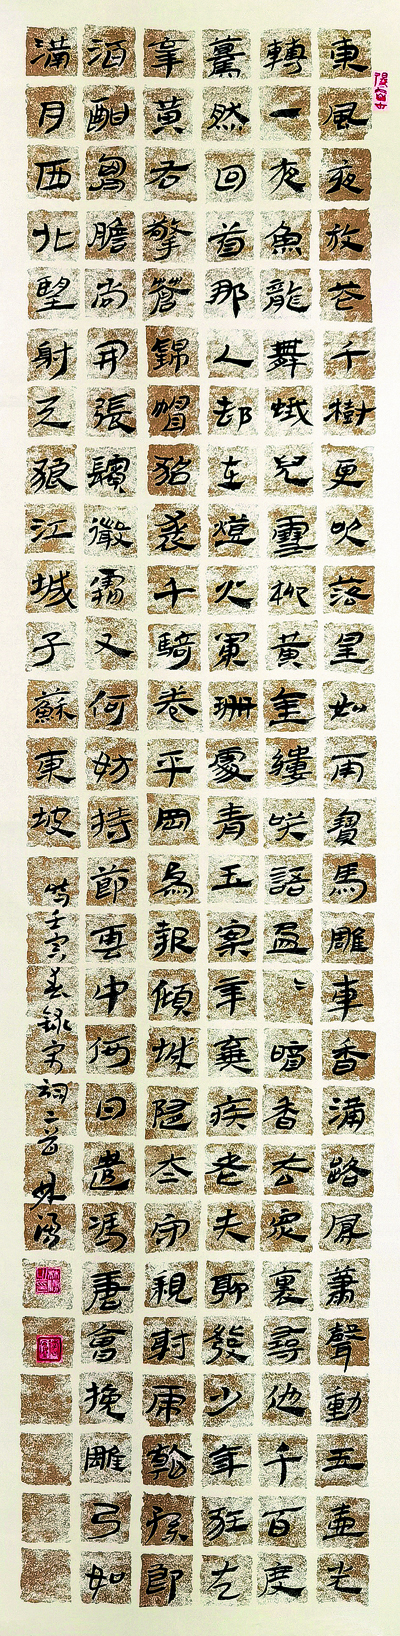 東風夜放花千樹更吹落星如雨寶馬雕車香滿路鳳蕭聲動五壺光
轉一夜魚龍舞蛾兒雪柳黃金縷笑語盈々暗香去眾裏尋他千百度
驀然回首那人却在燈火闌珊處青玉案辛棄疾老夫聊發少年狂左
牽黃右擎蒼錦帽貂裘千騎卷平岡為報傾城隨太守親射虎看孫郎
酒酣胸膽尚開張鬢微霜又何妨持節雲中何日遣馮唐會挽雕弓如
滿月西北望射天狼江城子蘇東坡
時壬寅春錄宋詞二首